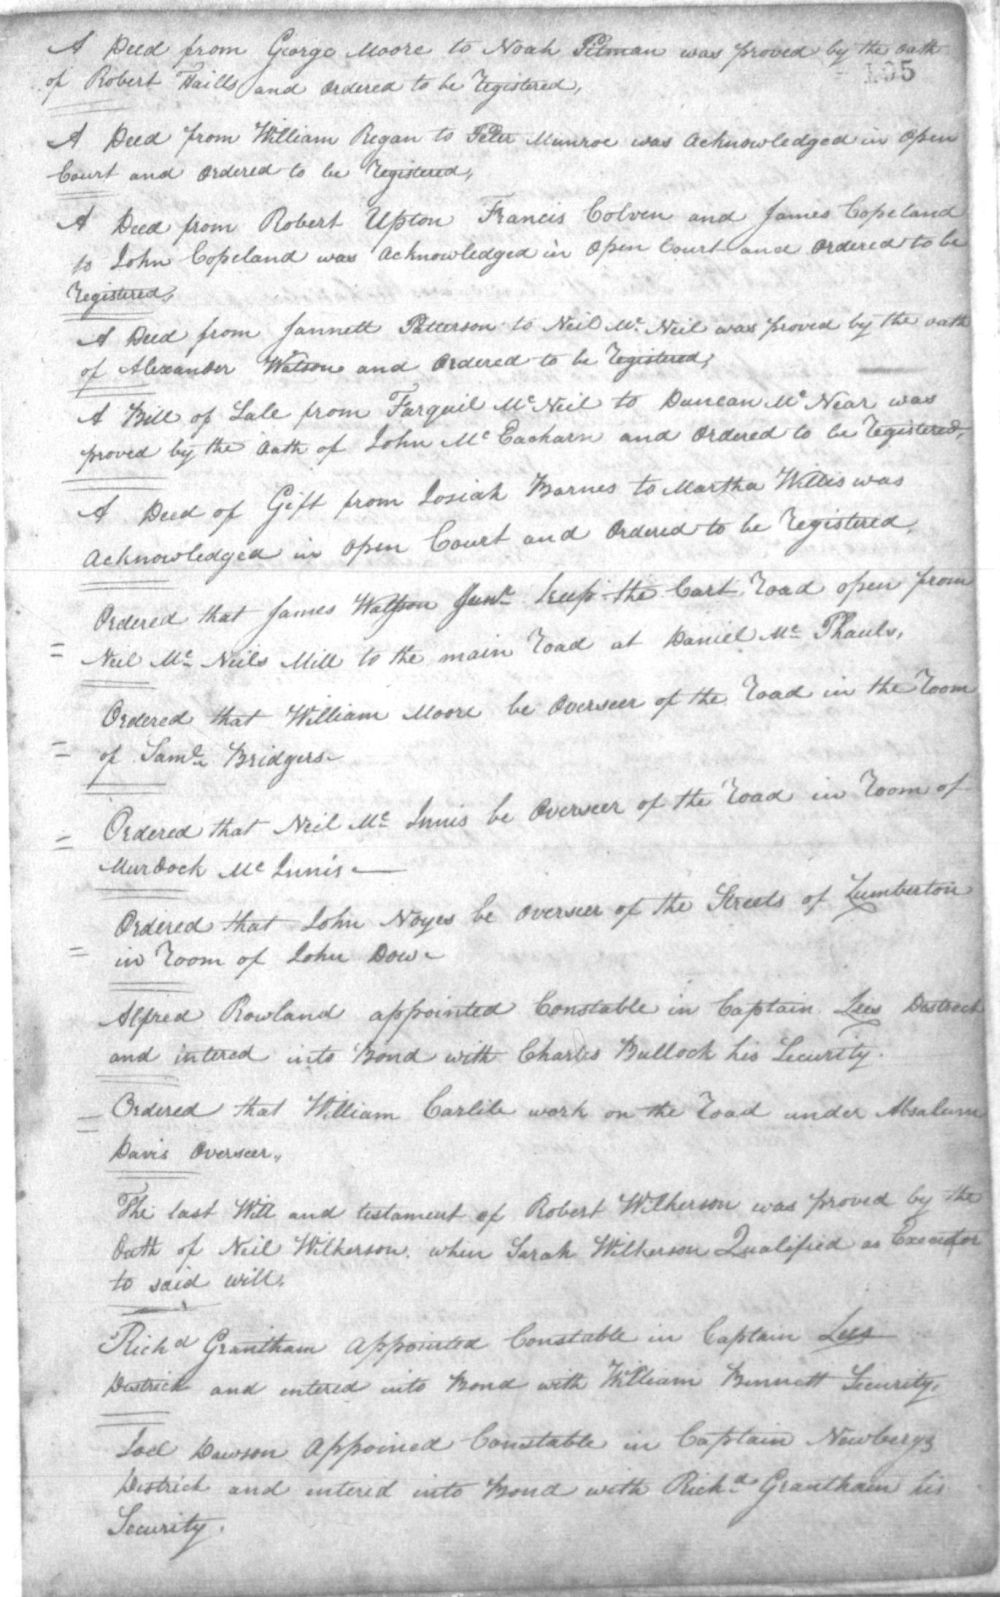 A Deed from George Moore to Noah Pitman was proved by the oath
195
of Robert Haills and ordered to be Registered,
A Deed from William Regan to Peter Munroe was acknowledged in open
Court and ordered to be Registered,
A Deed from Robert Upton Francis Colven and James Copeland
to John Copeland was acknowledged in open Court and ordered to be
Registered,
A Deed from Jannett Patterson to Neil Mc Neil was proved by the oath
of Alexander Watson and ordered to be Registered,
A Bill of Sale from Farquil Mc Neil to Duncan Mc Near was
proved by the oath of John Mc Eacharn and ordered to be Registered,
A Deed of Gift from Josiah Barnes to Martha Willis was
acknowledged in open Court and ordered to be Registered,
Ordered that James Watson Junr keep the Cart Road open from
Neil Mc Neils Mill to the main Road at Daniel Mc Phauls,
Ordered that William Moore be overseer of the Road in the Room
of Saml Bridgers
Ordered that Neil Mc Innis be overseer of the Road in Room of
Murdock Mc Innis
Ordered that John Noyes be overseer of the Streets of Lumberton
in Room of John Dow
Alfred Rowland appointed Constable in Captain Lees District
and intered into Bond with Charles Bullock his Security.
Ordered that William Carlile work on the Road under Absalum
Davis overseer,
The last Will and testament of Robert Wilkerson was proved by the
Oath of Neil Wilkerson, when Sarah Wilkerson Qualified as Executor
to said will,
Richd Grantham appointed Constable in Captain Lees
District and intered into Bond with William Bennett Security,
Joel Dawson appoined Constable in Captain Newberys
District and intered into Bond with Richd Grantham his
Security.